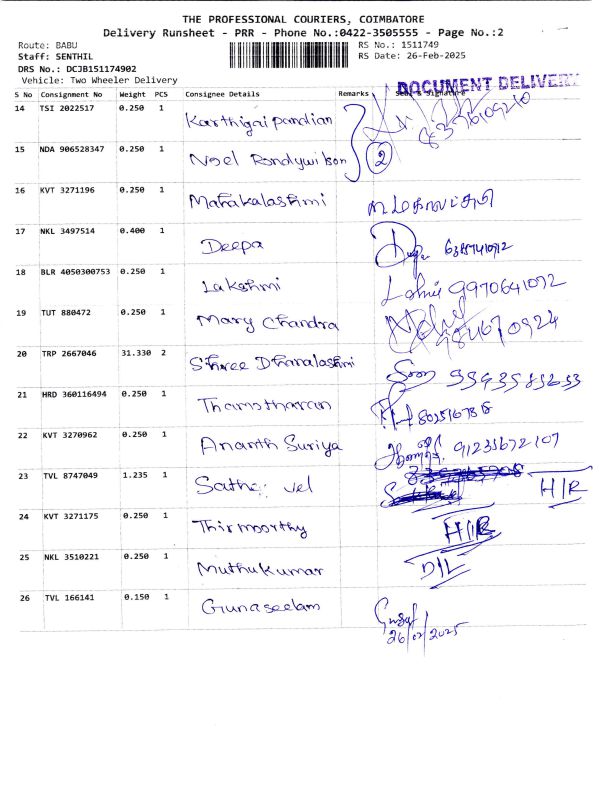 THE PROFESSIONAL COURIERS, COIMBATORE
Delivery Runsheet - PRR - Phone No.:0422-3505555 - Page No.:2
Route: BABU
Staff: SENTHIL
DRS No.: DCJB151174902
Vehicle: Two Wheeler Delivery
RS No.: 1511749
RS Date: 26-Feb-2025
DOCUMENT DELIVERY
S No Consignment No Weight PCS Consignee Details Remarks Seal & Signature
14 TSI 2022517 0.250 1 Karthigai pandian
15 NDA 906528347 0.250 1 Noel 2
16 KVT 3271196 0.250 1 Mahakalashmi
17 NKL 3497514 0.400 1 Deepa
18 BLR 4050300753 0.250 1 Lakshmi 9970641072
19 TUT 880472 0.250 1 Mary Chandra
20 TRP 2667046 31.330 2 Shree Dhanalashmi
21 HRD 360116494 0.250 1 Thamotharan
22 KVT 3270962 0.250 1 Ananth Suriya 91235672107
23 TVL 8747049 1.235 1 Sathe vel H/R
24 KVT 3271175 0.250 1 Thirmoorthy H/R
25 NKL 3510221 0.250 1 Muthukumar D/L
26 TVL 166141 0.150 1 Gunaseelam
26/02/2025